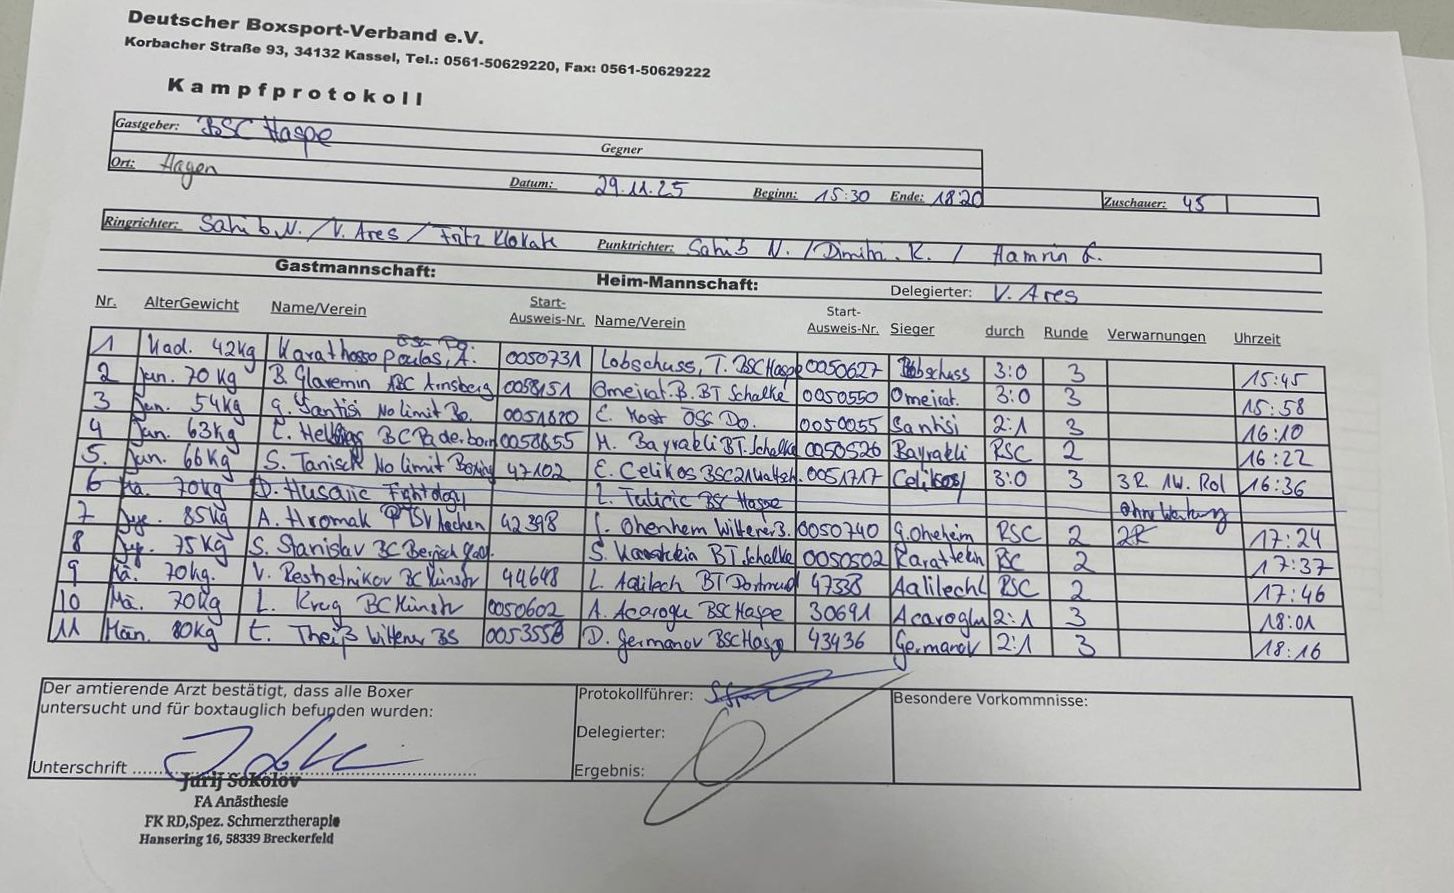 Deutscher Boxsport-Verband e.V.
Korbacher Straße 93, 34132 Kassel, Tel.: 0561-50629220, Fax: 0561-50629222
Kampfprotokoll
Gastgeber: BSC Haspe Gegner
Ort: Hagen Datum: 29.11.25 Beginn: 15:30 Ende: 18:20 Zuschauer: 45
Ringrichter: Sahib N. / V. Ares / Fritz Klokate Punktrichter: Sahib N. / Dimitri. K. / Hamrin
Gastmannschaft: Heim-Mannschaft: Delegierter: V. Ares
Nr. AlterGewicht Name/Verein Start-Ausweis-Nr. Name/Verein Start-Ausweis-Nr. Sieger durch Runde Verwarnungen Uhrzeit
1 Kad. 42Kg Karathossopoulos, A. 0050731 Lobschuss, T. BSC Haspe 0050627 Lobschuss 3:0 3 15:45
2 Jun. 70 Kg B. Glaremin ABC Arnsberg 0058151 Omeirat. B. BT Schalke 0050550 Omeirat. 3:0 3 15:58
3 Jun. 54Kg G. Santisi No limit Bo. 0051820 E. Kost ÖSG Do. 0050055 Santisi 2:1 3 16:10
4 Jun. 63Kg BC Paderborn 0058655 H. Bayrakli BT. Schalke 0050526 Bayrakli RSC 2 16:22
5. Jun. 66Kg S. Tanisch No limit Boxing 47102 E. Celikos BSC 0051717 Celikos 3:0 3 3R. 1W. Rol 16:36
6 Mä. 70Kg D. Husajic Fightology L. Tulicic BSC Haspe ohne Wertung
7 85Kg A. Hromak PTSV Aachen 42398 Ohenhem Wittener B. 0050740 G. Oheheim RSC 2 2R 17:24
8 75Kg S. Stanislav BC Bergisch Glad. S. Karattekin BT Schalke 0050502 Karattekin RSC 2 17:37
9 Mä. 70Kg. V. Reshetnikov BC Münstr 44648 L. Aalilech BT Dortmund 47338 Aalilech RSC 2 17:46
10 Mä. 70Kg L. Krug BC Münstr 0050602 A. Acaroglu BSC Haspe 30691 Acaroglu 2:1 3 18:01
11 Män. 80Kg E. Theiß Wittener BS 0053558 D. Germanov BSC Hasp 43436 Germanov 2:1 3 18:16
Der amtierende Arzt bestätigt, dass alle Boxer
untersucht und für boxtauglich befunden wurden:
Unterschrift
Protokollführer:
Delegierter:
Ergebnis:
Besondere Vorkommnisse:
Jurij Sokolov
FA Anästhesie
FK RD,Spez. Schmerztherapie
Hansering 16, 58339 Breckerfeld